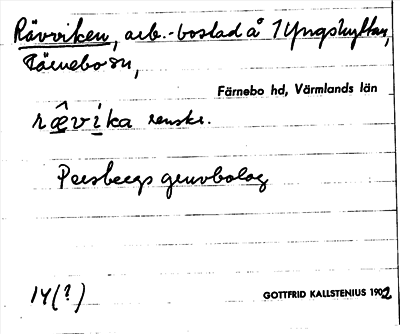 Rävviken, arb.-bostad å Yngshyttan,
Färnebo sn,
Färnebo hd, Värmlands län
rævika renskr.
Persbergs gruvbolag
14(?)
GOTTFRID KALLSTENIUS 1902